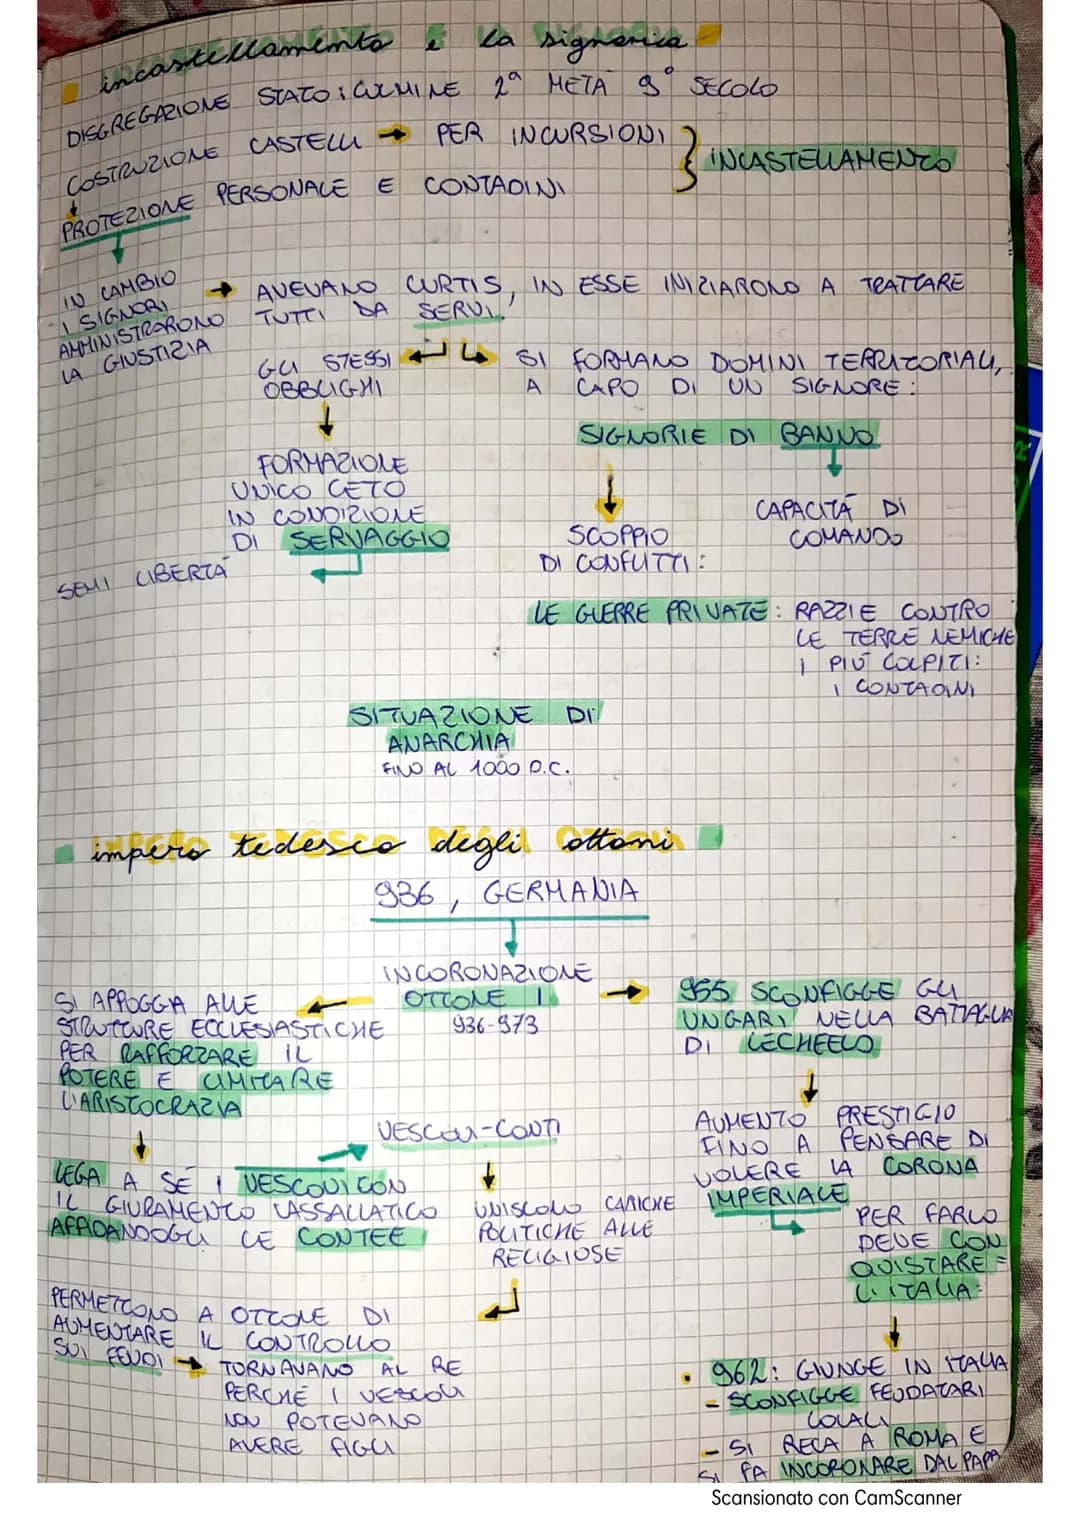 incastellamento e la signoria
DISGREGAZIONE STATO: CULMINE 2ª METÀ 9° SECOLO
COSTRUZIONE CASTELLI → PER INCURSIONI
INCASTELLAMENTO
PROTEZIONE PERSONALE E CONTADINI
IN CAMBIO
I SIGNORI
AMMINISTRARONO
LA GIUSTIZIA
→ AVEVANO CURTIS, IN ESSE INIZIARONO A TRATTARE
TUTTI DA SERVI.
GLI STESSI
OBBLIGHI
SI FORMANO DOMINI TERRITORIALI,
A CAPO DI UN SIGNORE:
SIGNORIE DI BANNO
FORMAZIONE
UNICO CETO
IN CONDIZIONE
DI SERVAGGIO
SEMI LIBERTÀ
CAPACITÀ DI
COMANDO
SCOPPIO
DI CONFLITTI:
LE GUERRE PRIVATE: RAZZIE CONTRO
LE TERRE NEMICHE
I PIÙ COLPITI:
I CONTADINI
SITUAZIONE DI
ANARCHIA
FINO AL 1000 D.C.
impero tedesco degli ottoni
936, GERMANIA
INCORONAZIONE
OTTONE I
936-973
SI APPOGGIA ALLE
STRUTTURE ECCLESIASTICHE
PER RAFFORZARE IL
POTERE E LIMITARE
L'ARISTOCRAZIA
955 SCONFIGGE GLI
UNGARI NELLA BATTAGLIA
DI LECHEELO
AUMENTO PRESTIGIO
FINO A PENSARE DI
VOLERE LA CORONA
IMPERIALE
VESCOVI-CONTI
LEGA A SÉ I VESCOVI CON
IL GIURAMENTO VASSALLATICO
AFFIDANDOGLI LE CONTEE
UNISCONO CARICHE
POLITICHE ALLE
RELIGIOSE
PER FARLO
DEVE CON
QUISTARE =
L'ITALIA:
PERMETTONO A OTTONE DI
AUMENTARE IL CONTROLLO
SUI FEUDI → TORNAVANO AL RE
PERCHÉ I VESCOVI
NON POTEVANO
AVERE FIGLI
• 962: GIUNGE IN ITALIA
- SCONFIGGE FEUDATARI
LOCALI
- SI RECA A ROMA E
SI FA INCORONARE DAL PAPA
Scansionato con CamScanner